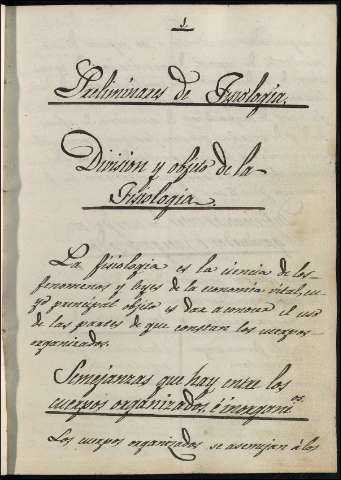 1.
Preliminares de Fisiologia.
Division y objeto de la
Fisiologia.
La fisiologia es la ciencia de los
fenomenos y leyes de la economia vital, cu-
yo principal objeto es dar a conocer el uso
de las partes de que constan los cuerpos
organizados.
Semejanzas que hay entre los
cuerpos organizados, é inorganicos.
Los cuerpos organizados se asemejan á los